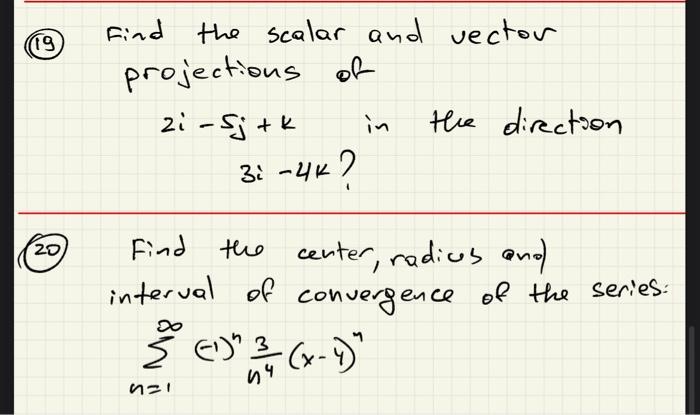 19 Find the scalar and vector
projections of
2i - 5j + k in the direction
3i - 4k?
20 Find the center, radius and
interval of convergence of the series:
∞
∑ (-1)ⁿ 3/n⁴ (x-4)ⁿ
n=1